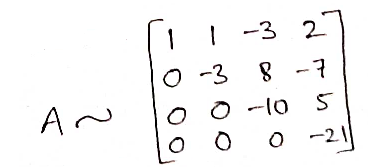 1 1 -3 2
0 -3 8 -7
A ~ 0 0 -10 5
0 0 0 -21